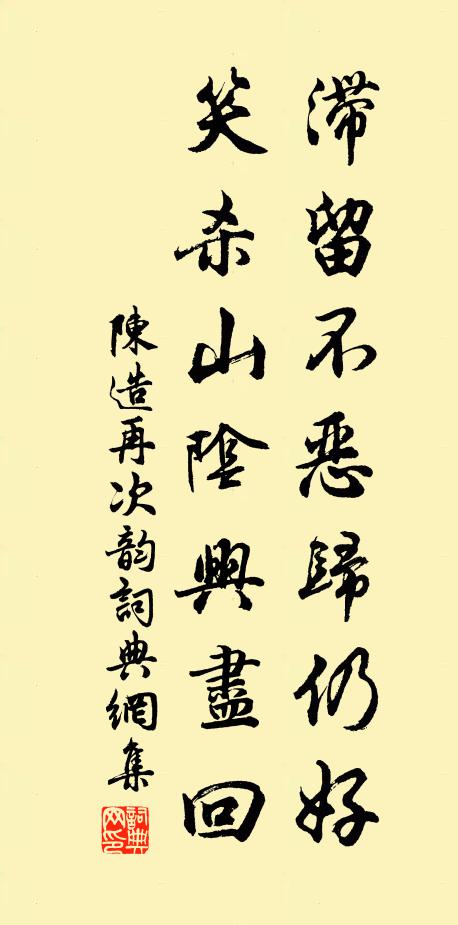 滯留不惡歸仍好
笑杀山陰興盡回
陳造再次韵詞典網集
詞典网印